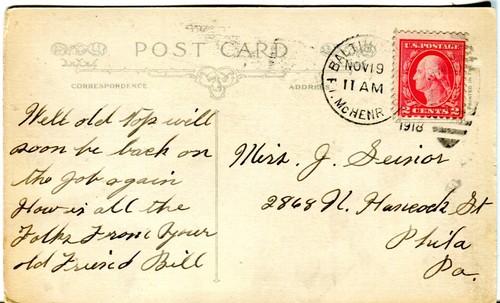 POST CARD
CORRESPONDENCE
ADDRESS
BALTIM
NOV 19
11 AM
FT. McHENR
1918
U.S. POSTAGE
2 CENTS 2
Well old Top will
soon be back on
the Job again
How is all the
Folks From Your
old Friend Bill
Mrs. J. Senior
2868 N. Hancock St
Phila
Pa.